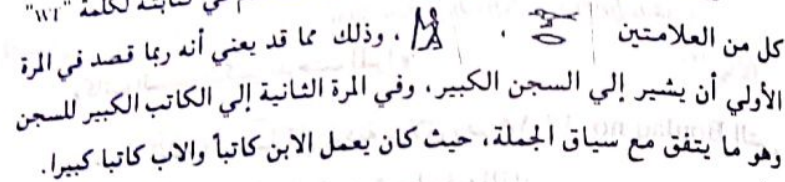 في كتابته لكلمة "wr"
كل من العلامتين ، ، وذلك مما قد يعني أنه ربما قصد في المرة
الأولي أن يشير إلي السجن الكبير، وفي المرة الثانية إلي الكاتب الكبير للسجن
وهو ما يتفق مع سياق الجملة، حيث كان يعمل الابن كاتباً والاب كاتبا كبيرا.